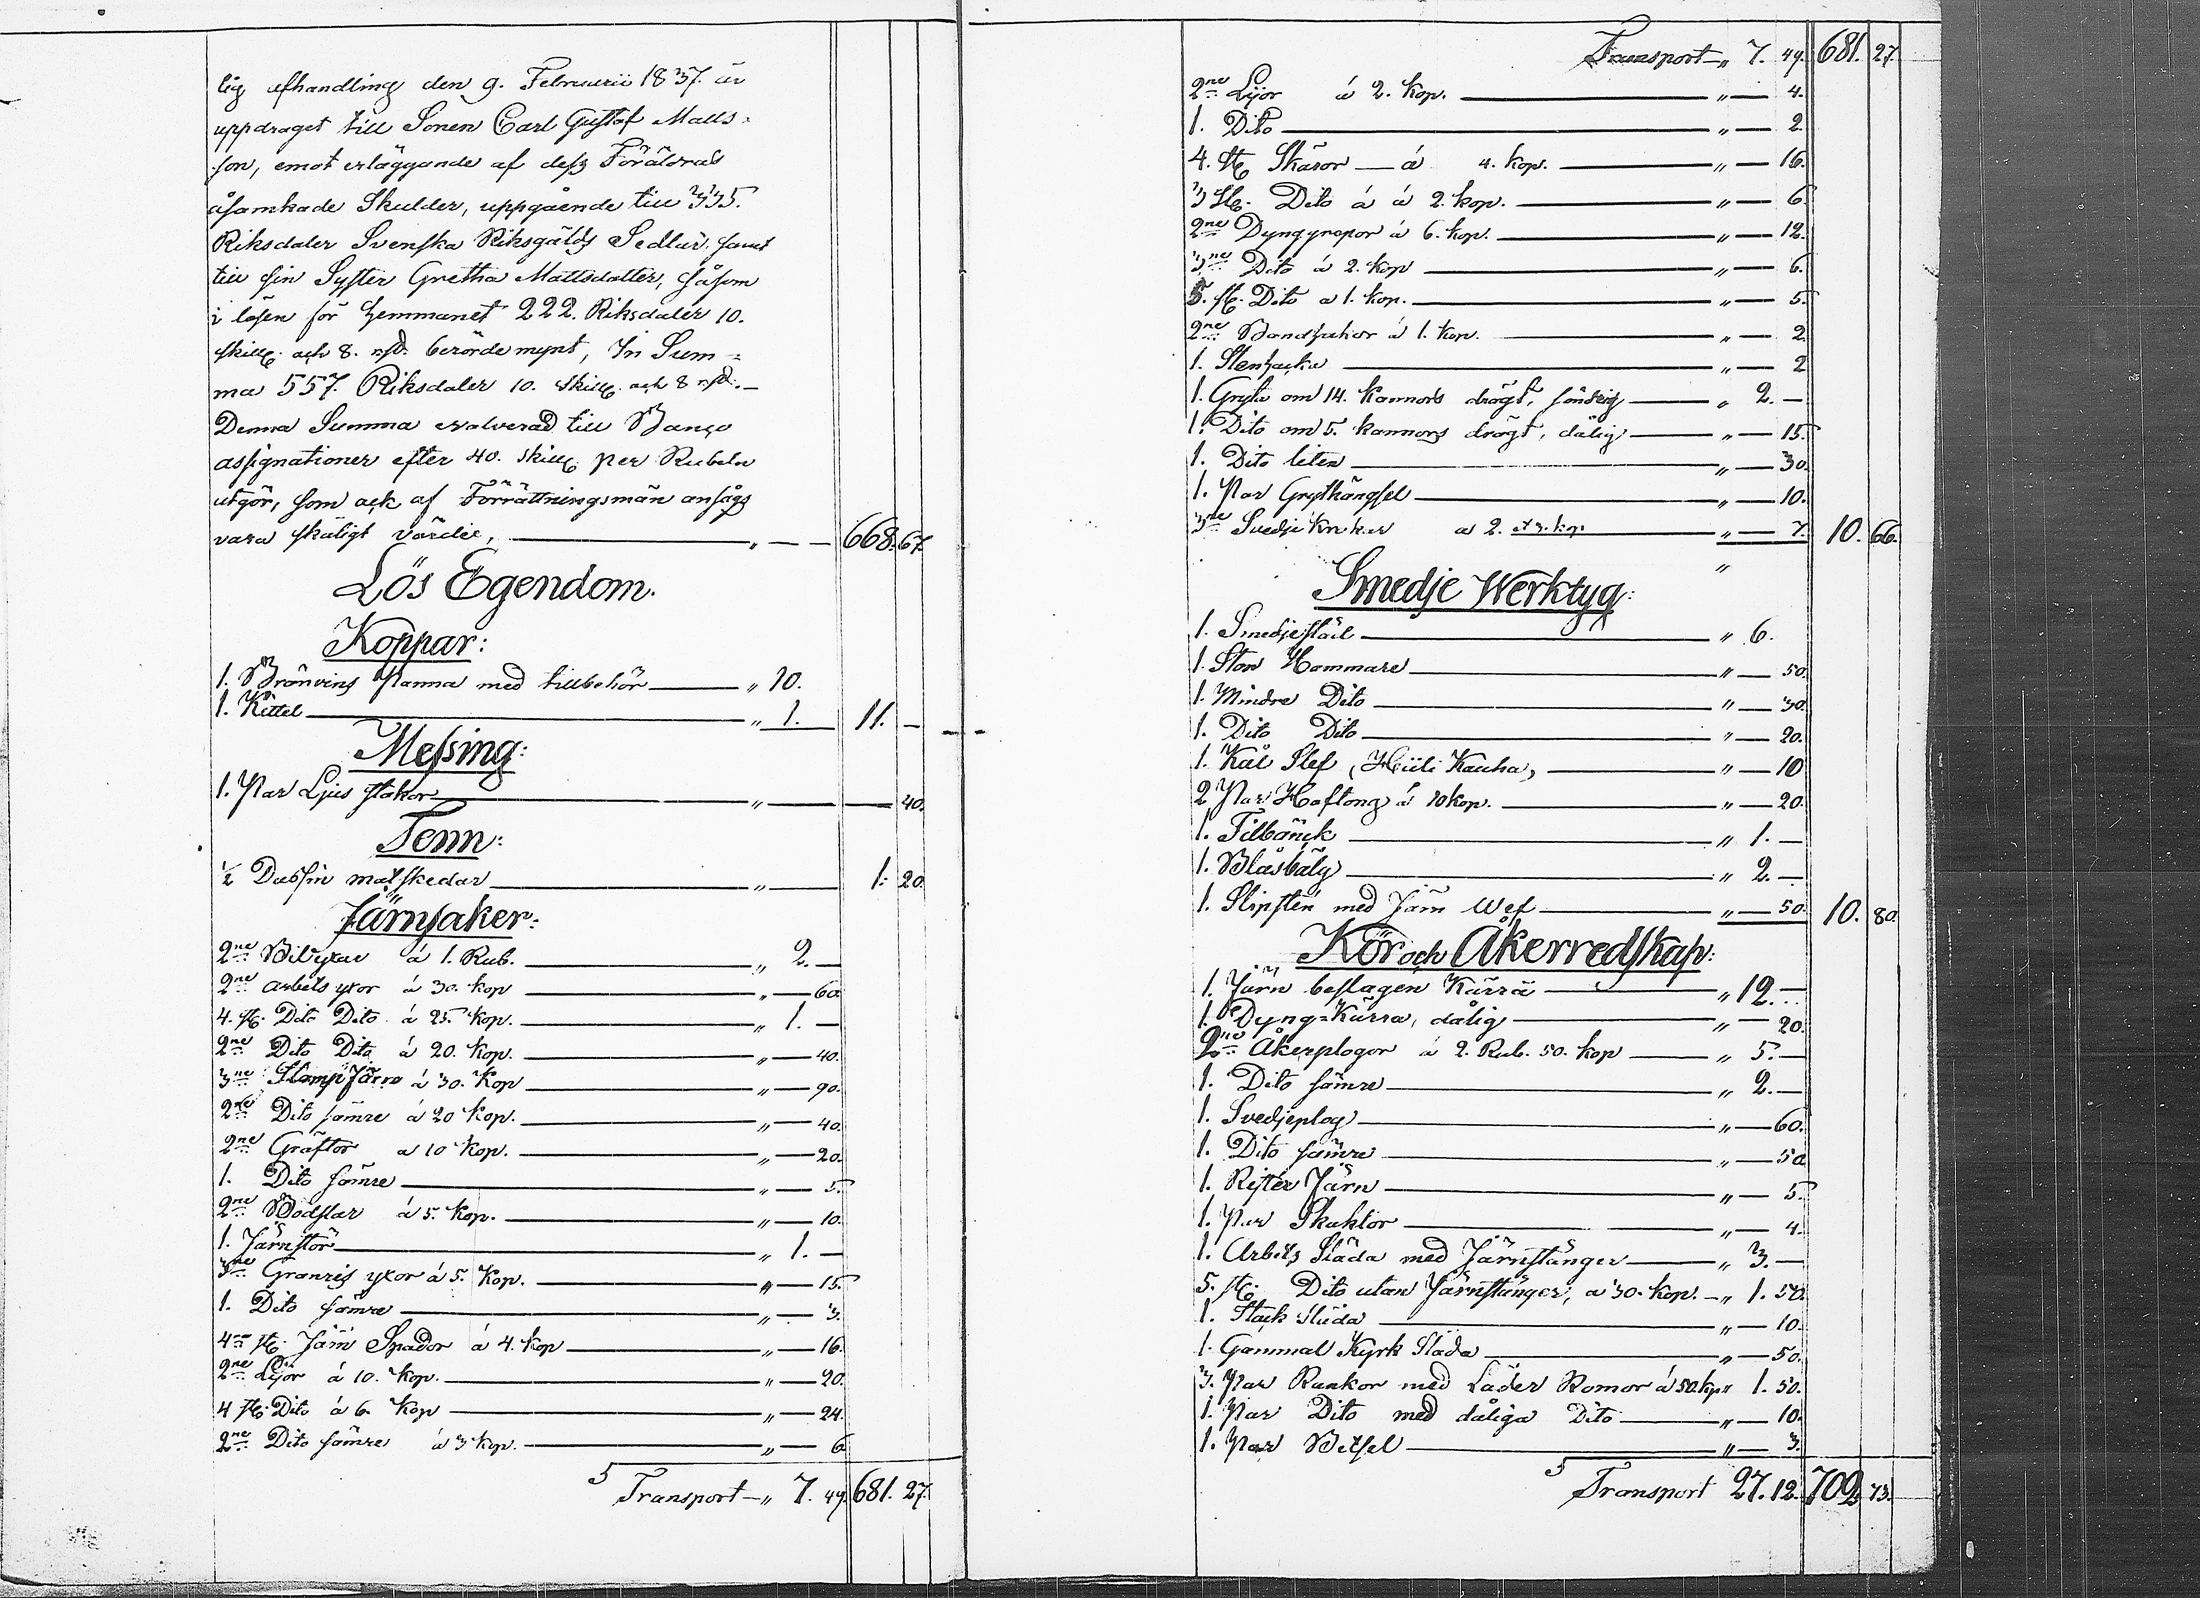 lig afhandling den 9. Februarii 1837. är
uppdraget till Sonen Carl Gustaf Matts-
son, emot erläggande af dess Föräldras
åsamkade Skulder, uppgående till 335.
Riksdaler Svenska Riksgälds Sedlar, samt
till sin Syster Gretha Mattsdotter, såsom
i lösen för hemmanet 222. Riksdaler 10.
skill. och 8. rst. berörde mynt, In Sum-
ma 557. Riksdaler 10. skill. och 8 rst. —
Denna Summa evalverad till Banco
assignationer efter 40. skill. per Rubeln
utgör, som ock af Förrättningsmän ansågs
vara skäligt värde, — „ — 668. 67.
Lös Egendom.
Koppar:
1. Bränvins Panna med tillbehör — „ 10.
1. Kittel — „ 1. 11. —
Messing:
1. Par Ljus stakor — „ — 40.
Tenn:
½ Dussin matskedar — „ — 1. 20.
Järnsaker:
2ne Bilyxar á 1. Rub. — „ 2. —
2ne arbets yxor á 30. kop — „ — 60.
4. st. Dito Dito á 25. kop. — „ 1. —
2ne Dito Dito á 20. kop. — „ — 40.
3ne Stamp Järn á 30. Kop — „ — 90.
2ne Dito sämre á 20 kop. — „ — 40.
2ne Gräftor a 10 kop. — „ — 20.
1. Dito sämre — „ — 5.
2ne Bödslar á 5. kop. — „ — 10.
1. Järnstör — „ 1. —
3ne Granris yxor á 5. Kop. — „ — 15.
1. Dito sämre — „ — 3.
4 st. Järn Spador á 4. kop — „ — 16.
2ne Lijor á 10. kop. — „ — 20.
4 st. Dito á 6. kop — „ — 24.
2ne Dito sämre á 3 kop. — „ — 6
5 Transport — „ 7. 49. 681. 27.
Transport — „ 7. 49. 681. 27.
2ne Lijor á 2. kop. — „ — 4.
1. Dito — „ — 2.
4. st. Skäror — á 4. kop. — „ — 16.
3 st. Dito á á 2. kop. — „ — 6.
2ne Dyngyrepor á 6. kop. — „ — 12.
3ne Dito á 2. kop — „ — 6.
5. st. Dito a 1. kop. — „ — 5.
2ne Bandhakar á 1. kop. — „ — 2.
1. Stenhacka — „ — 2
1. Gryta om 14. kannors drägt, söndrig — „ 2. —
1. Dito om 5. kannors drägt, dålig — „ — 15.
1. Dito liten — „ — 30.
1. Par Grythängsel — „ — 10.
3ne Svedje krokar a 2. et 3. kop — „ — 7. 10. 66.
„
Smedje Werktyg:
1. Smedjestäd — „ 6.
1. Stor Hammare — „ — 50.
1. Mindre Dito — „ — 30.
1. Dito Dito — „ — 20.
1. Kål Slef (Hiili Kauha) — „ — 10
2 Par Hoftong á 10 kop. — „ — 20.
1. Filbänck — „ 1. —
1. Blåsbälg — „ 2. —
1. Slipsten med Järn Wef — „ — 50. 10. 80.
Kör och Åkerredskap:
1. Järn beslagen Kärra — „ 12. —
1. Dyng-Kärra, dålig — „ — 20.
2ne Åkerplogor á 2. Rub. 50. kop — „ 5. —
1. Dito sämre — „ 2. —
1. Svedjeplog — „ — 60.
1. Dito sämre — „ — 50
1. Rister Järn — „ — 5.
1. Par Skaklor — „ — 4.
1. Arbets Släda med Järnstänger — „ 3. —
5. st. Dito utan Järnstänger, a 30. kop. — „ 1. 50.
1. Stäck Släda — „ — 10.
1. Gammal Kyrk Släda — „ — 50.
3. Par Rankor med Läder Romor á 50. kp „ 1. 50.
1. Par Dito med dåliga Dito — „ — 10.
1. Par Betsel — „ — 3.
5 Transport 27. 12. 702. 73.